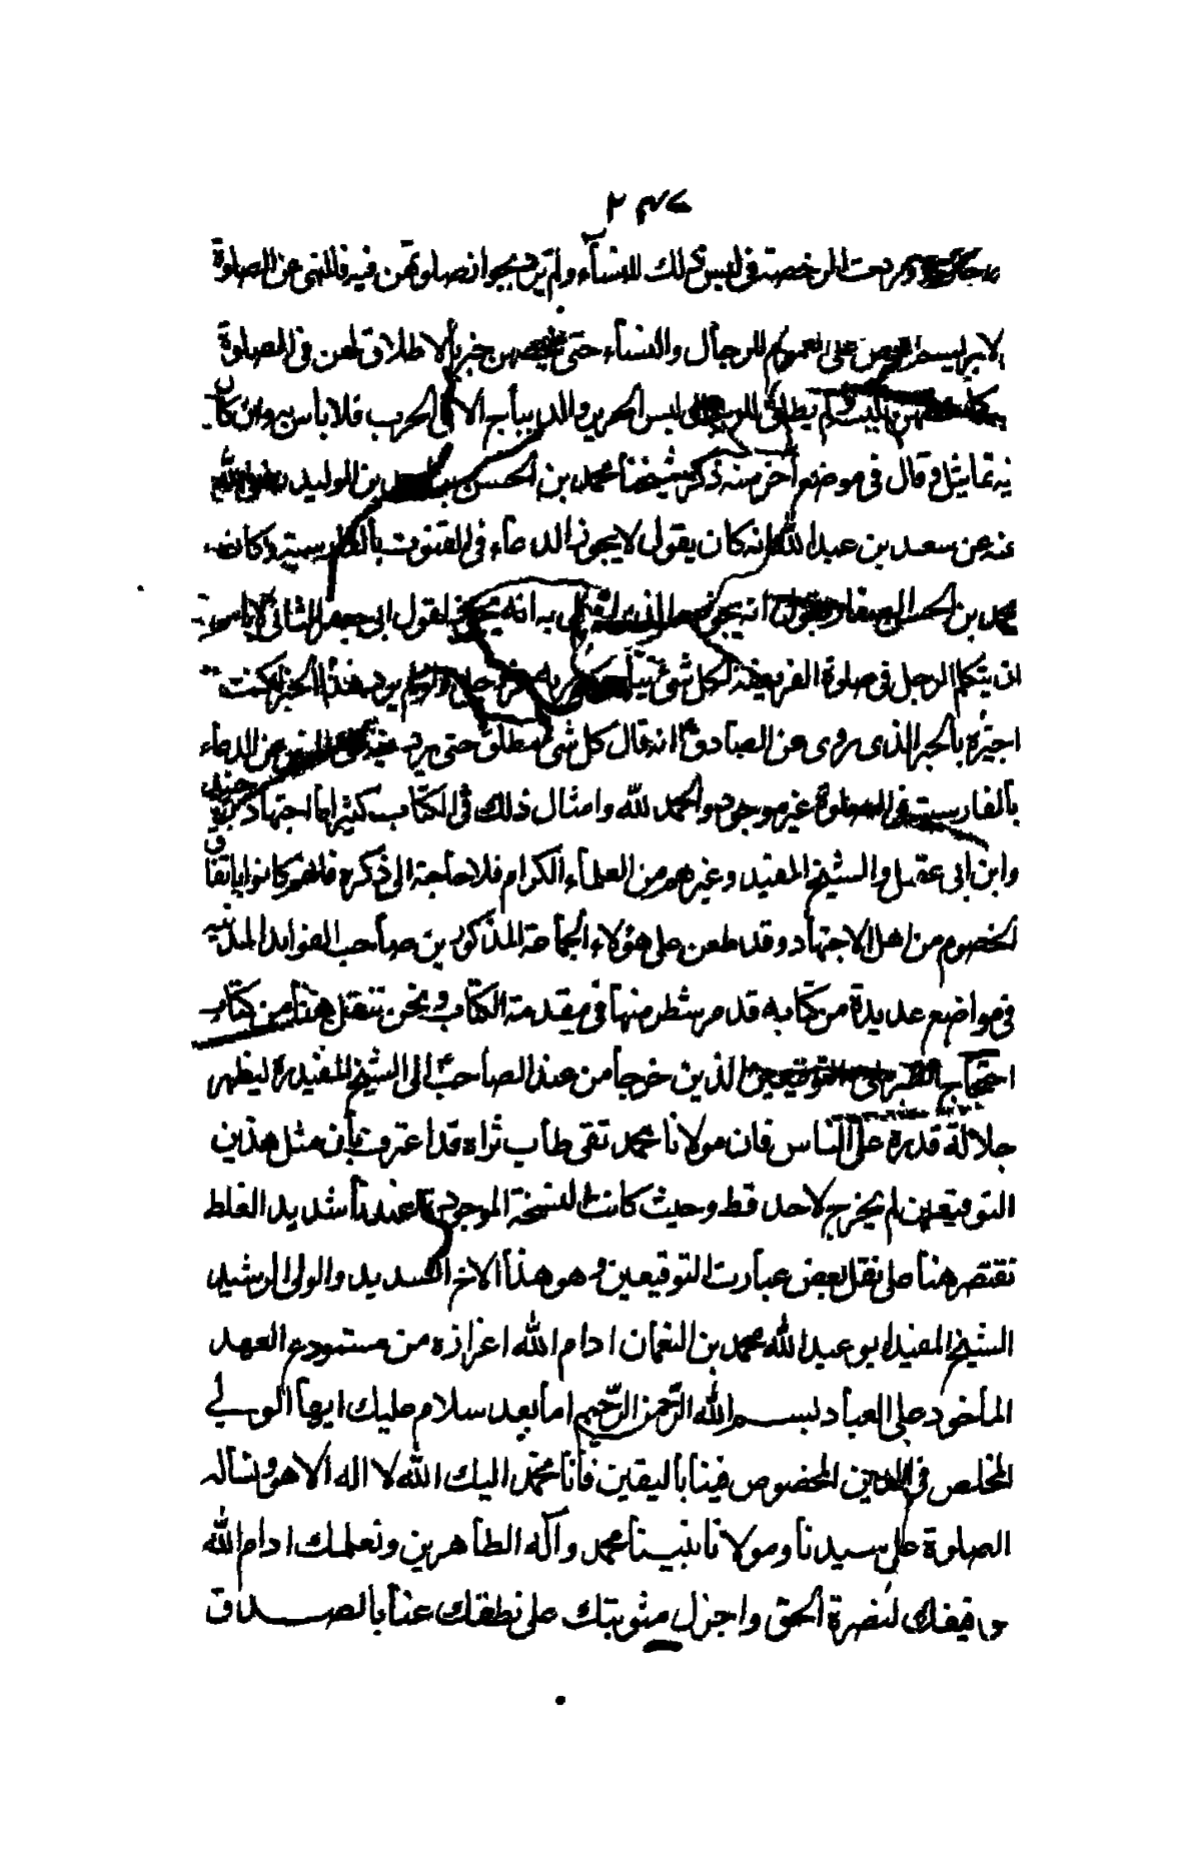 ٢٣٧
وردت الرخصة فى لبس ذلك للنسأء ولم يرد بجواز صلوتهن فيه فالنهى عن الصلوة
الابريسم على العموم للرجأل والنسأء حتى يخصهن خبر بألاطلاق لهن فى الصلوة
ولم يطلق للرجال لبس الحرير والديبأج الا فى الحرب فلا بأس به وان كأن
فيه تماثيل وقال فى موضع أخر منه ذكر شيخنأ محمد بن الحسن بن احمد بن الوليد رضى الله
عنه عن سعد بن عبد الله انه كان يقول لا يجوز الدعأء فى القنوت بألفارسية وكان
محمد بن الحسن الصفار يقول انه يجوز والذى اقول به انه يجوز لقول ابى جعفر الثانى لا بأس
ان يتكلم الرجل فى صلوة الفريضة بكل شئ ينأجى به ربه عز وجل ولو لم يرد هذا الخبر لكنت
اجيزه بألخبر الذى روى عن الصأدق انه قال كل شئ مطلق حتى يرد فيه نهى والنهى عن الدعأء
بألفارسية فى الصلوة غير موجود والحمد لله وامثال ذلك فى الكتأب كثير امأ اجتهاد ابن جنيد
وابن ابى عقيل والشيخ المفيد وغيرهم من العلمأء الكرام فلا حأجة الى ذكره فانهم كانوا باتفاق
الخصوم من اهل الاجتهأد وقد طعن على هؤلاء الجمأعة المذكورين صأحب الفوايد المدنيه
فى مواضع عديدة من كتابه قد مر شطر منهأ فى مقدمة الكتأب ونحن ننقل هنأ من كتأب
احتجأج الطبرسى التوقيعين الذين خرجأ من عند الصأحب الى الشيخ المفيد ره ليظهر
جلالة قدره على الناس فان مولانأ محمد تقى طأب ثراه قد اعترف بأن مثل هذين
التوقيعين لم يخرج لاحد قط وحيث كانت النسخة الموجودة عندنأ شديد الغلط
نقتصر هنأ على نقل بعض عبارت التوقيعين وهو هذأ الاخ السديد والولى الرشيد
الشيخ المفيد ابو عبد الله محمد بن النعمان ادام الله اعزازه من مستودع العهد
المأخوذ على العبأد بسم الله الرحمن الرحيم امأ بعد سلام عليك ايهأ الولى
المخلص فى الدين المخصوص فينأ بأليقين فأنأ نحمد اليك الله لا اله الا هو ونسأله
الصلوة على سيدنأ ومولانأ نبينأ محمد وآله الطأهرين ونعلمك ادام الله
توفيقك لنصرة الحق واجزل مثوبتك على نطقك عنأ بالصدق